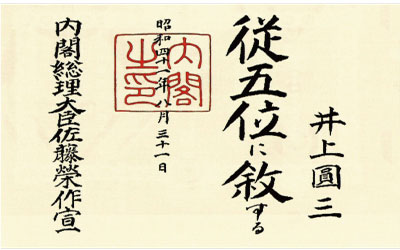 井上圓三
従五位に敘する
昭和四十一年八月三十一日
内閣之印
内閣総理大臣佐藤榮作宣